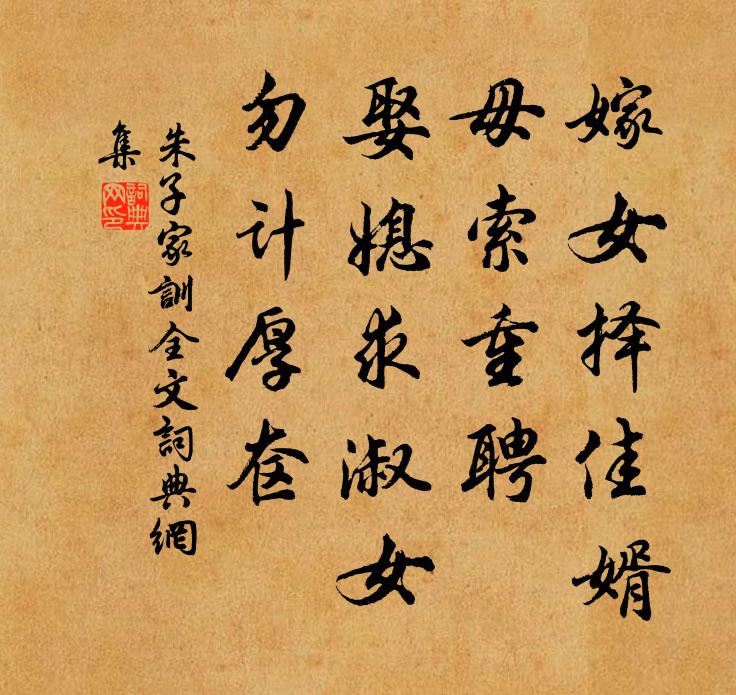 嫁女择佳婿
毋索重聘
娶媳求淑女
勿计厚奁
朱子家訓全文詞典網
集
詞典
网印